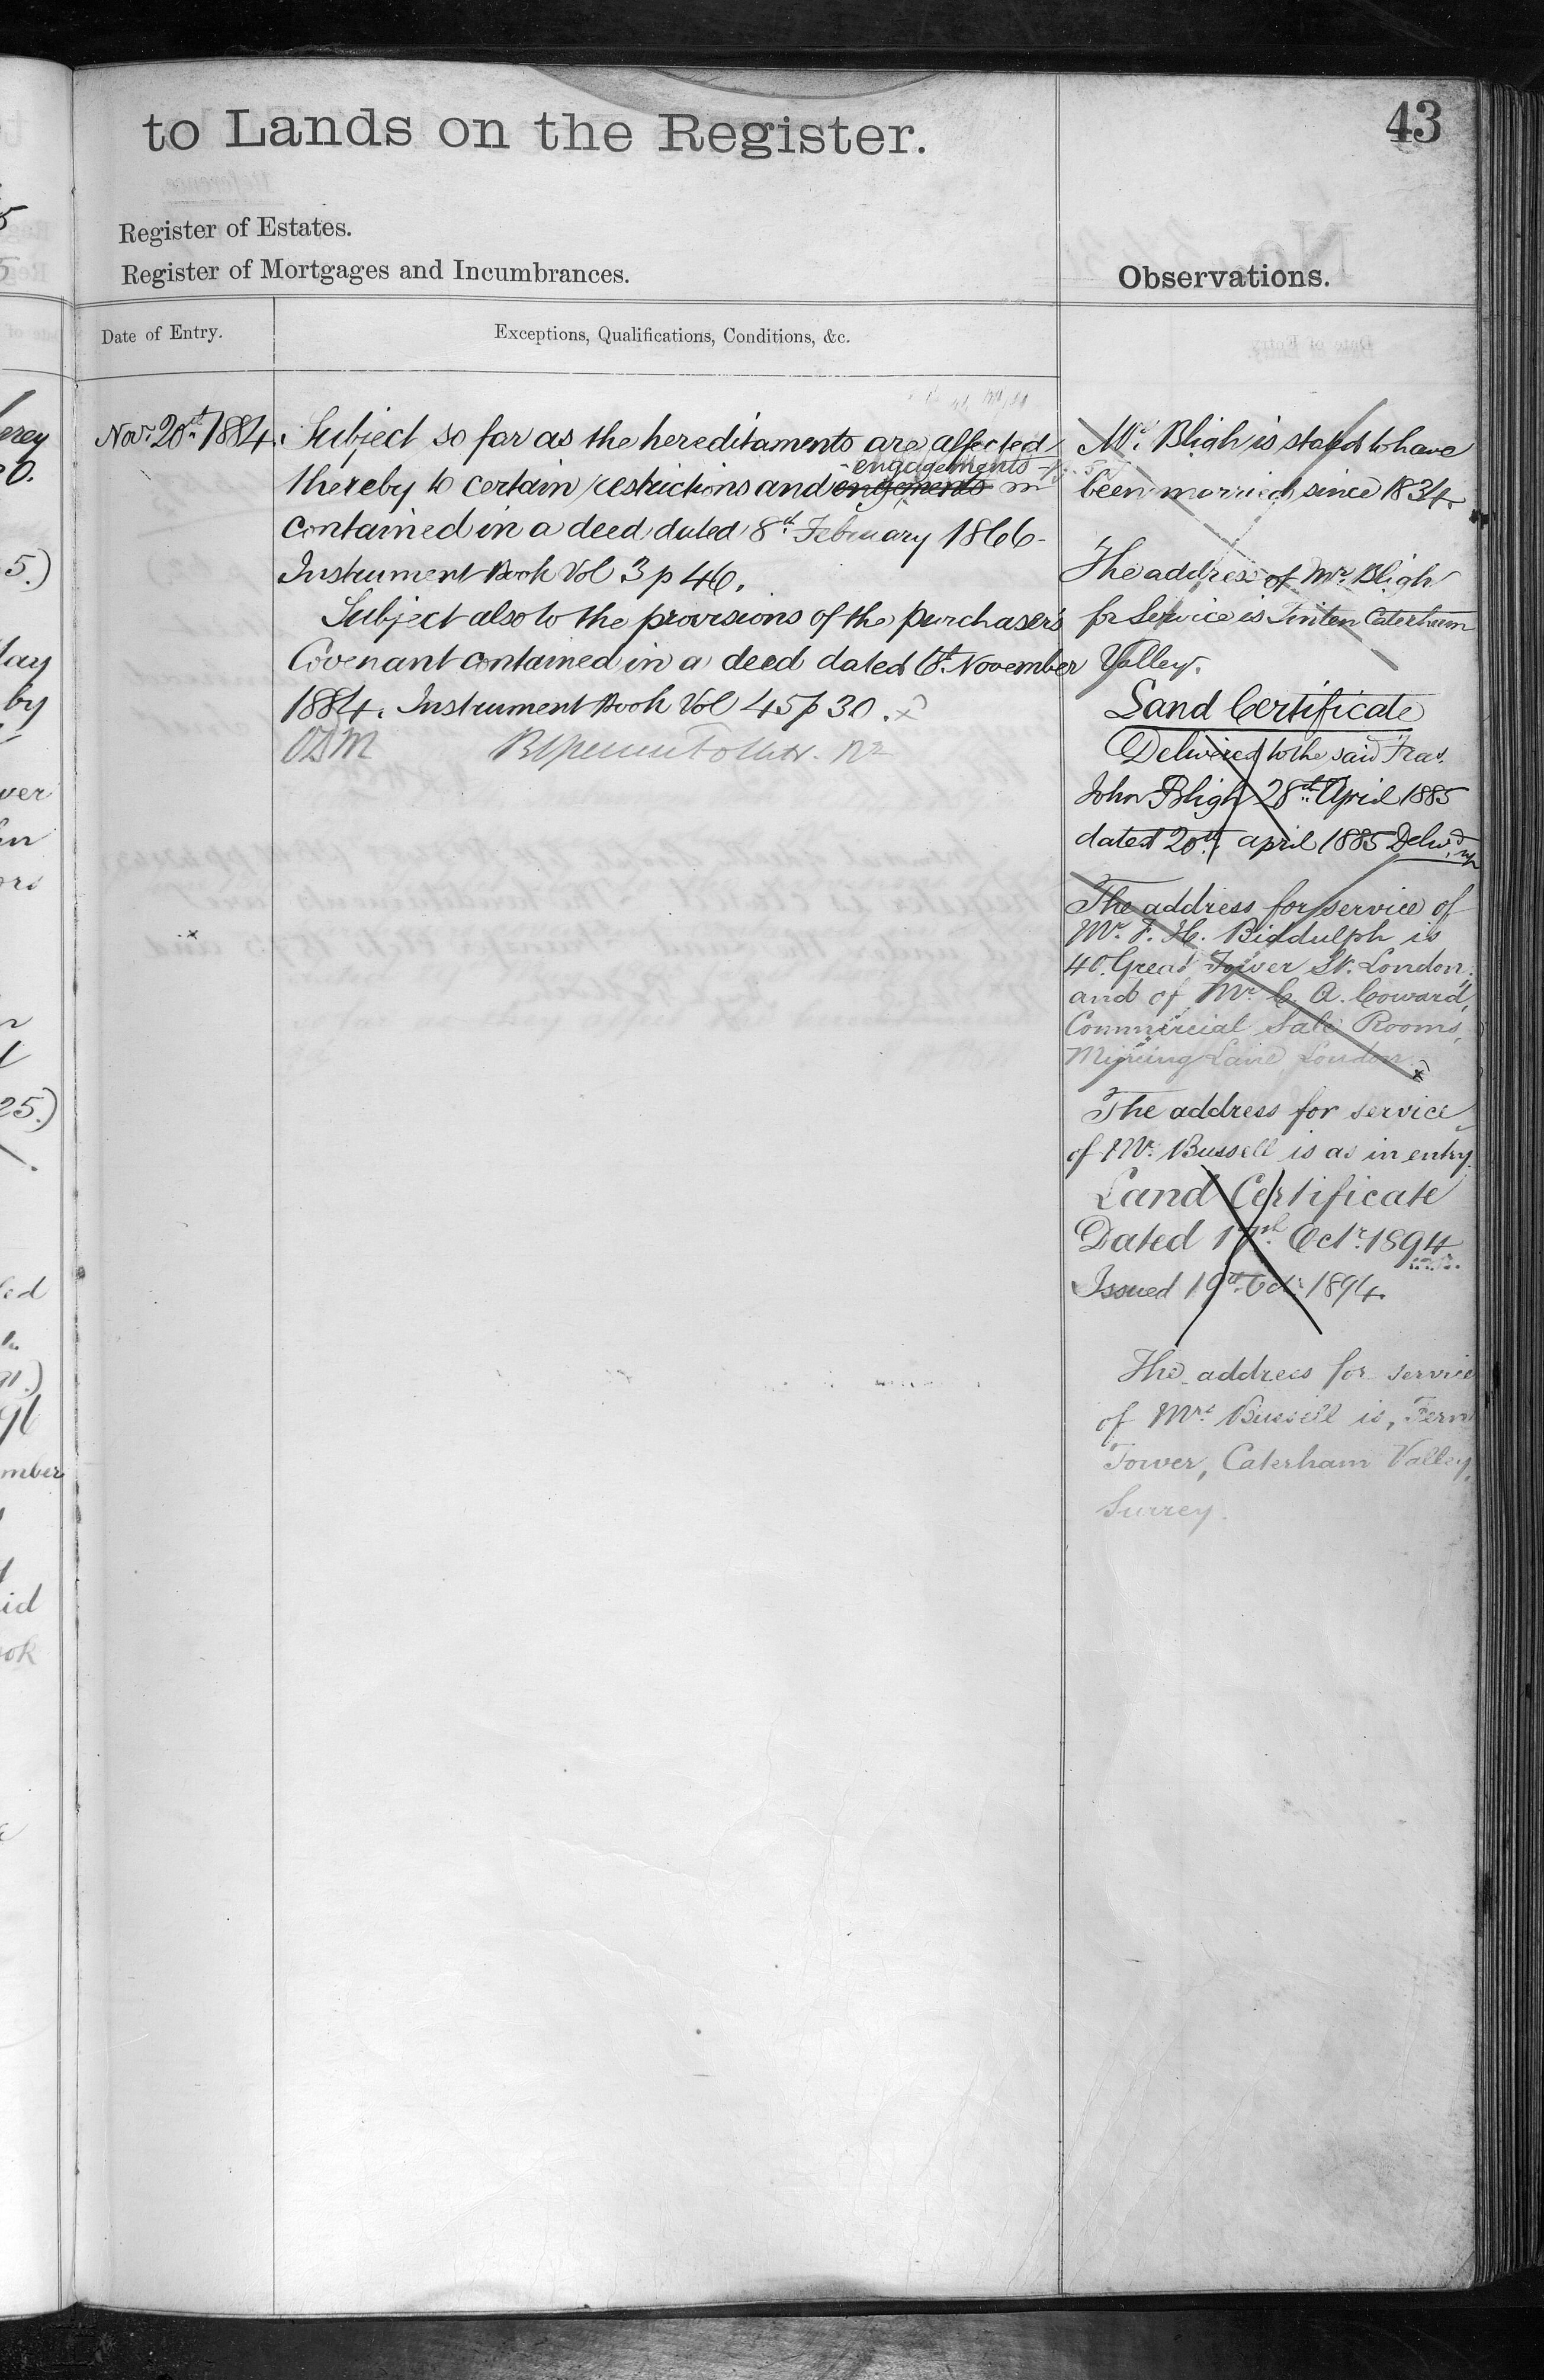 to Lands on the Register.
43
Register of Estates.
Register of Mortgages and Incumbrances.
Observations.
Date of Entry.
Exceptions, Qualifications, Conditions, &c.
Nov. 20th 1884.
Subject so far as the hereditaments are affected
- engagements -
thereby to certain restrictions and engements
contained in a deed dated 8th February 1866 -
Instrument Book Vol 3 p 46.
Subject also to the provisions of the purchasers
Covenant contained in a deed dated 6th November
1884. Instrument Book Vol 45 p 30.
Mr. Bligh is stated to have
been married since 1834.
The address of Mr. Bligh
for Service is Caterham
Valley.
Land Certificate
Delivered to the said Fras.
John Bligh 28th April 1885
dated 20th April 1885 Delivd up
The address for service of
Mr. F. H. Biddulph is
40. Great Tower St. London.
and of Mr. C. A. Coward,
Commercial Sale Rooms,
Mincing Lane London
x
The address for service
of Mr. Bussell is as in entry.
Land Certificate
Dated 17th Octr. 1894.
Issued 19th Oct: 1894.
The address for service
of Mrs. Bussell is, Fern
Tower, Caterham Valley,
Surrey.
5
5
erey
0.
5.)
lay
by
ver
25.)
ed
91.)
mber
id
ok